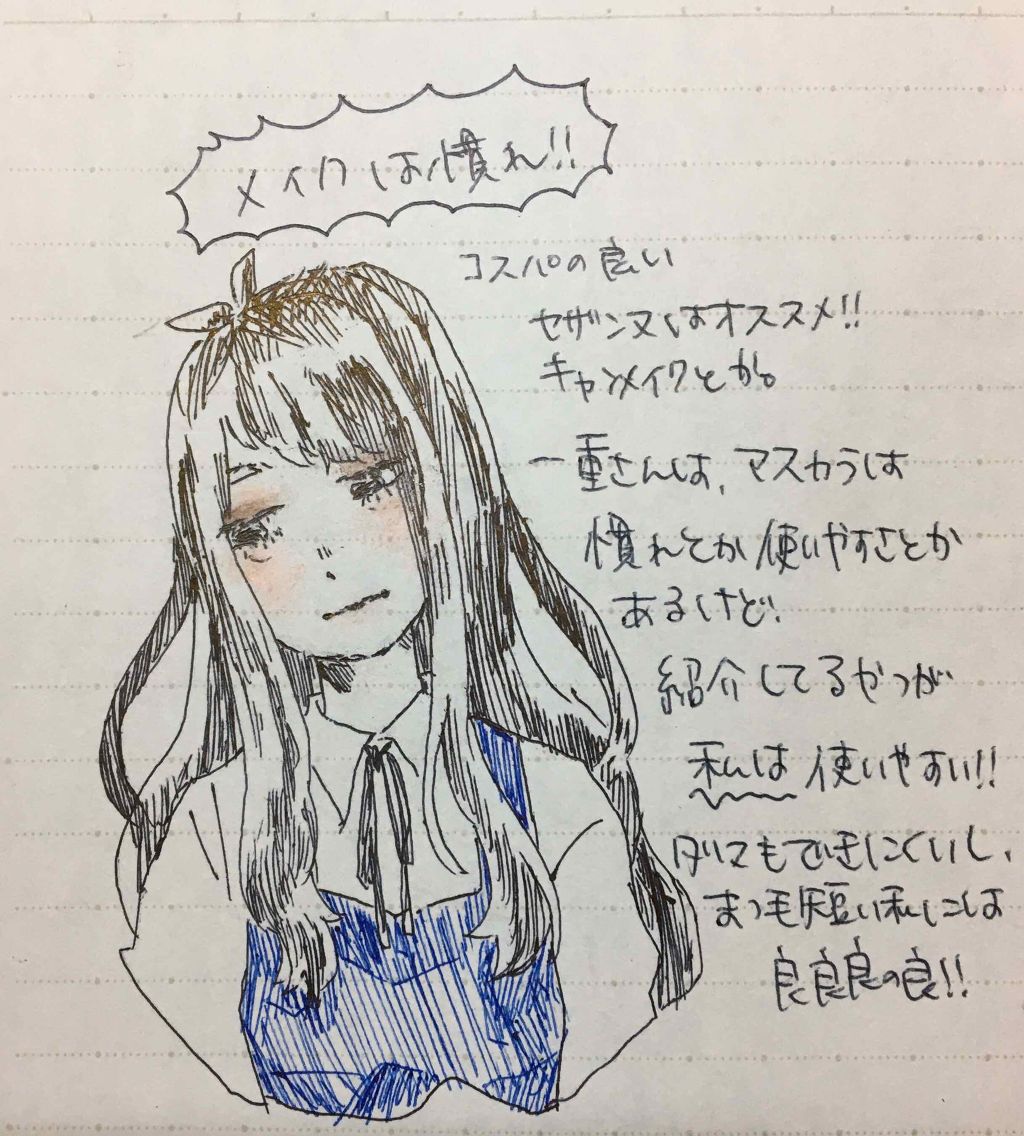 メイクは慣れ!!
コスパの良い
セザンヌはオススメ!!
キャンメイクとか。
一重さんは、マスカラは
慣れとか使いやすさとか
あるけど、
紹介してるやつが
私は使いやすい!!
ダマもできにくいし、
まつ毛短い私には
良良良の良!!